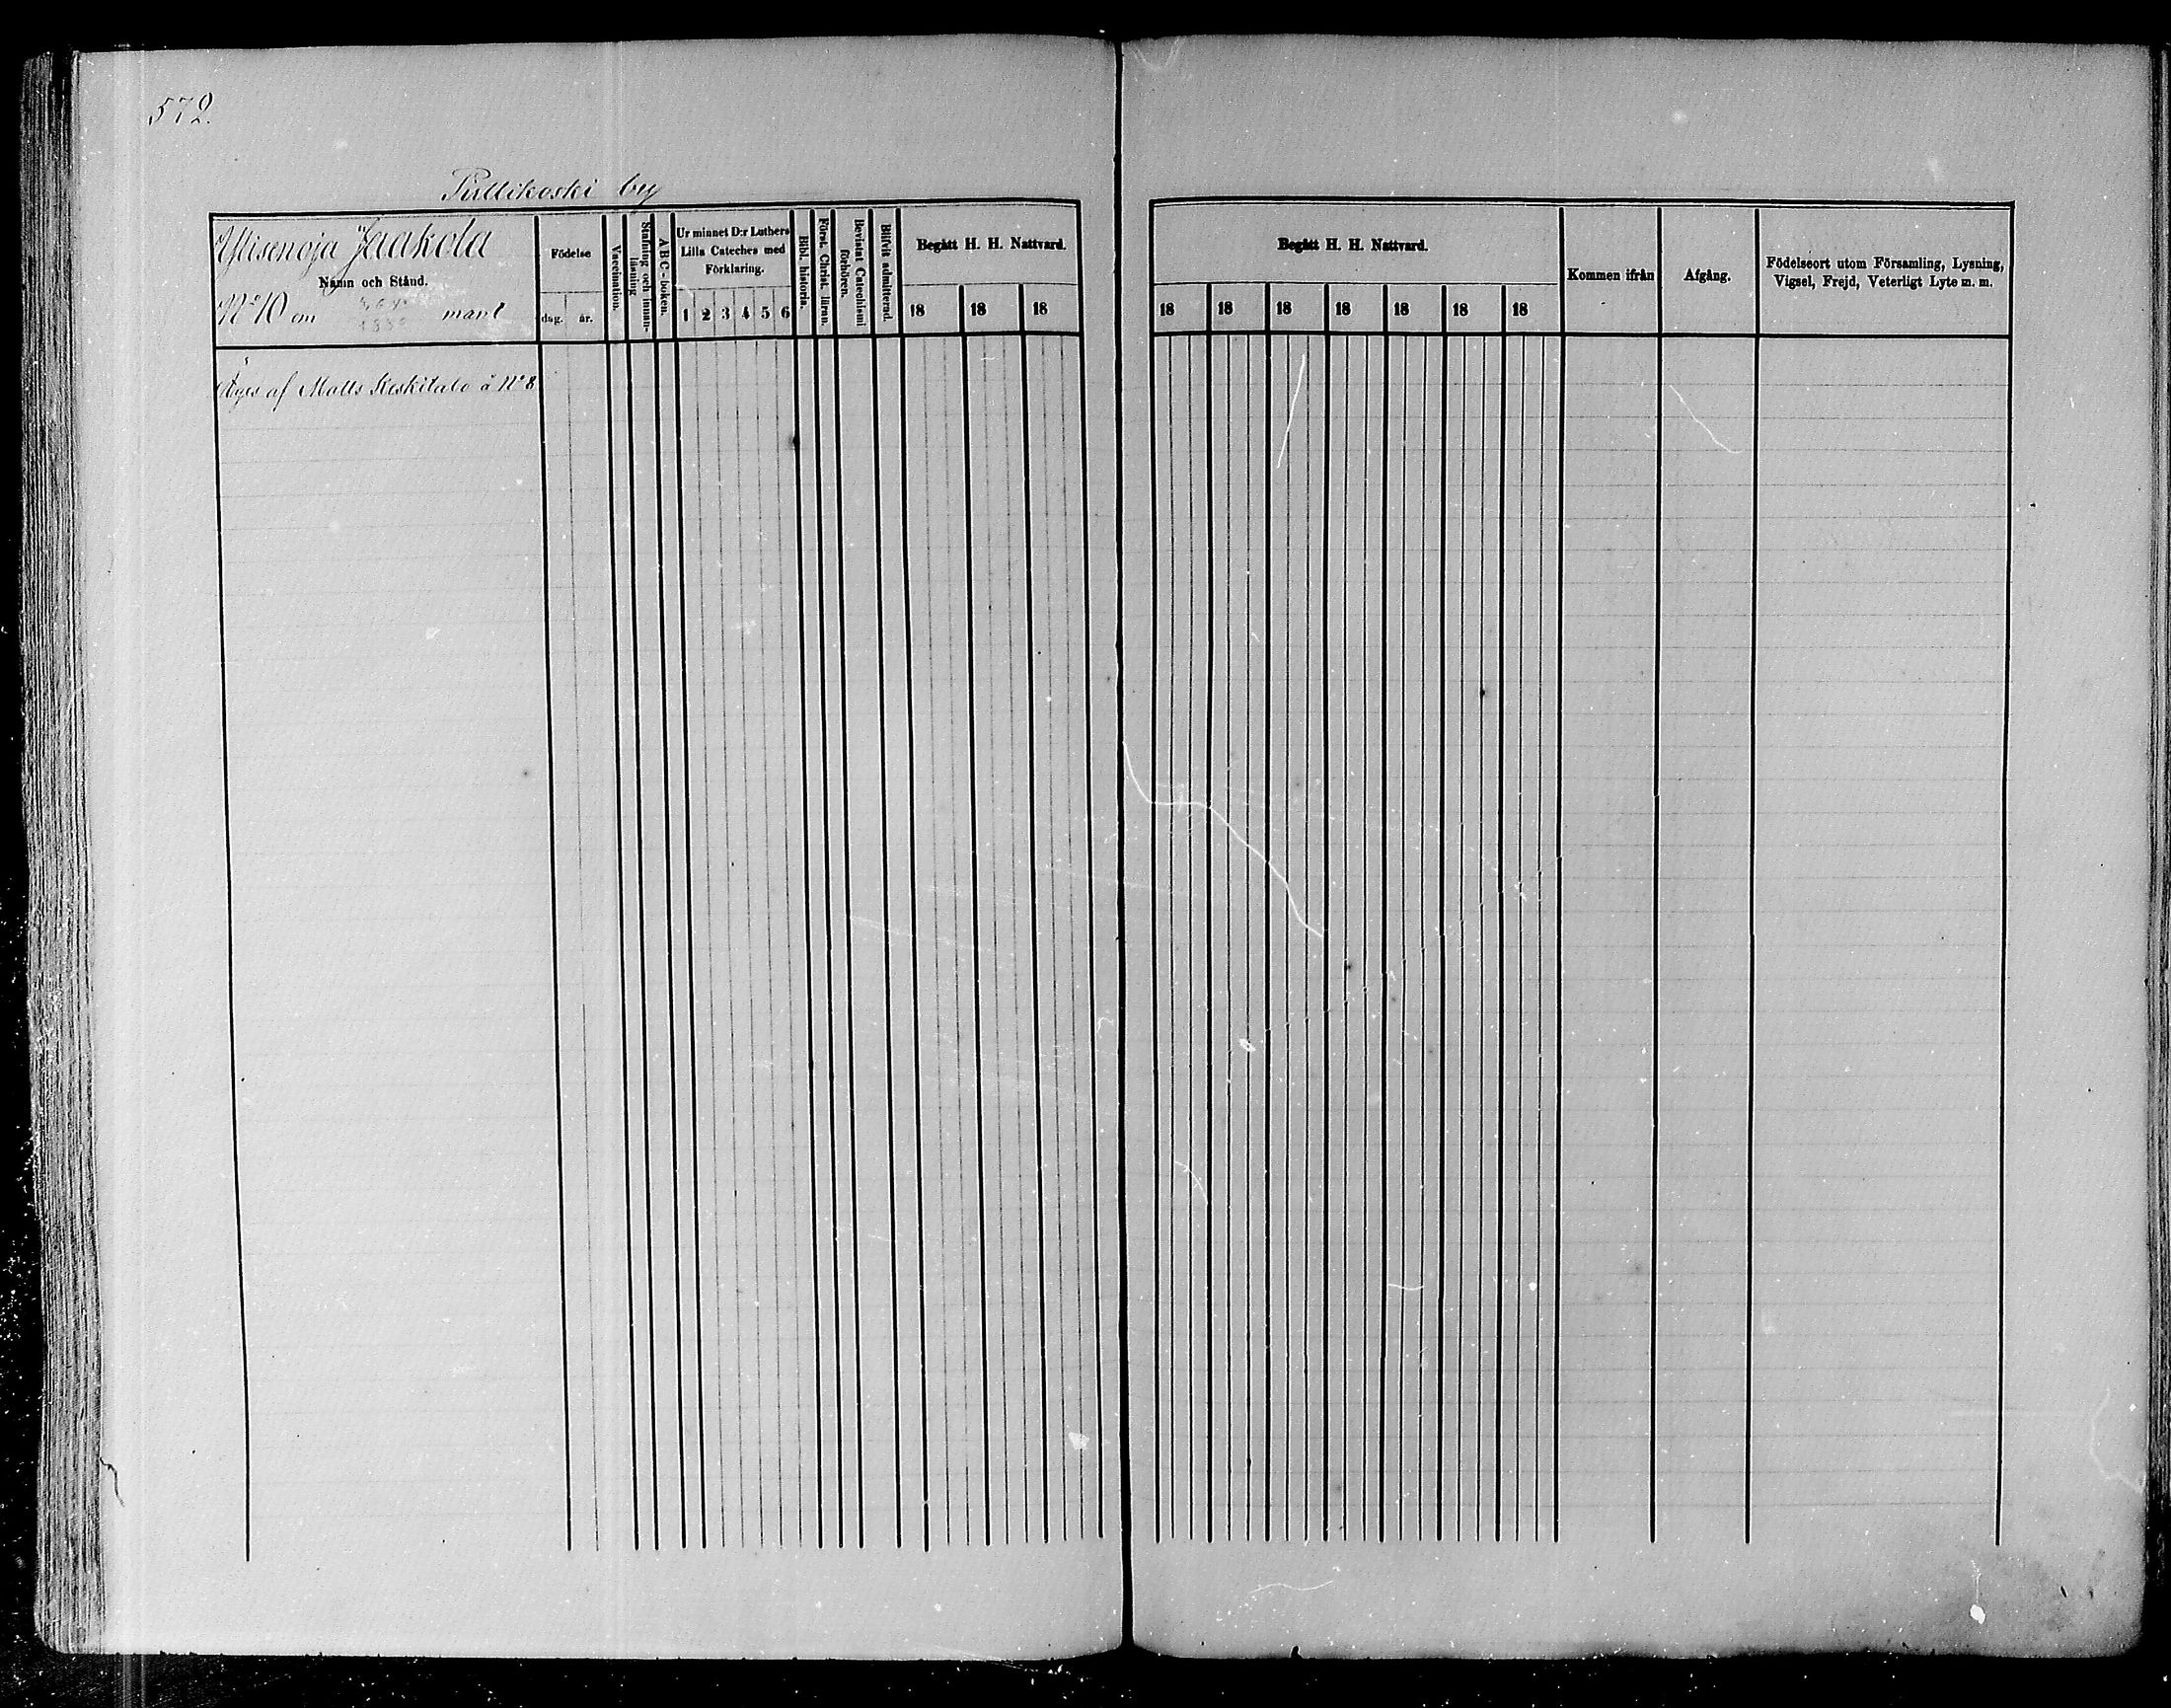 572.
by
Jaakola
Namn och Stånd.
No 10 om mant
Äges af Matts Keskitalo å No 8
Födelse
dag. år.
Vaccination.
Stafning och innan-
läsning
ABC-boken.
Ur minnet D:r Luthers
Lilla Cateches med
Förklaring.
1 2 3 4 5 6
Bibl. historia.
Först. Christ. läran.
Bevistat Catechismi
förhören.
Blifvit admitterad.
Begått H. H. Nattvard.
18 18 18
Begått H. H. Nattvard.
18 18 18 18 18 18 18
Kommen ifrån
Afgång.
Födelseort utom Församling, Lysning,
Vigsel, Frejd, Veterligt Lyte m. m.